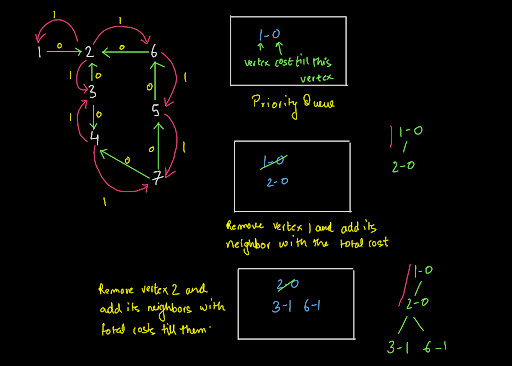 1 0 1
1 0 2 0 6
1 0 1
3
0 5
1 4 0 1
0
1 7
1-0
vertex cost till this
vertex
Priority Queue
1-0
2-0
1-0
2-0
Remove vertex 1 and add its
neighbor with the total cost
Remove vertex 2 and
add its neighbors with
total costs till them.
2-0
3-1 6-1
1-0
2-0
3-1 6-1